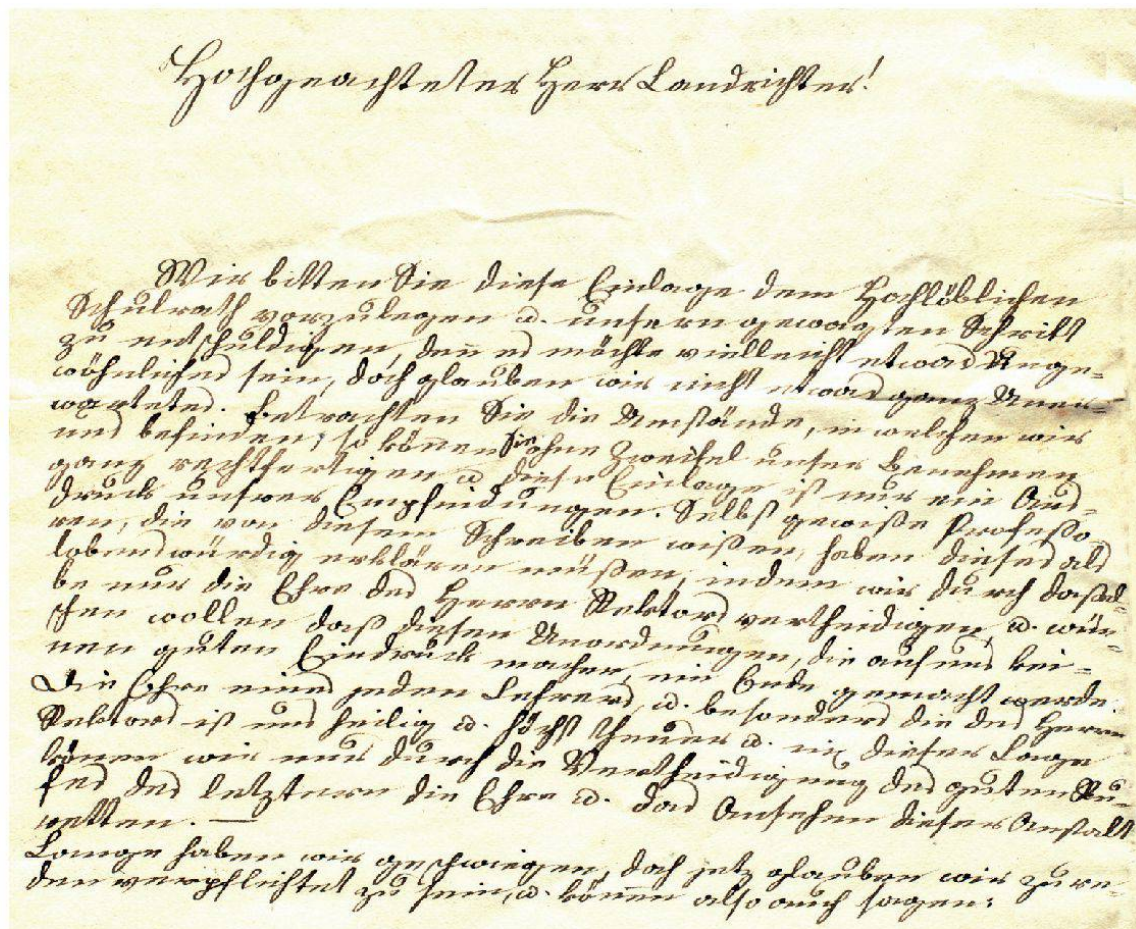 Hochgeachteter Herr Landrichter!
Wir bitten Sie diese Einlage dem Hochlöblichen
Schulrath vorzulegen u. unsern gewagten Schritt
zu entschuldigen, deñ es möchte vielleicht etwas Unge-
wöhnliches sein, doch glauben wir nicht etwas ganz Uner-
wartetes. Betrachten Sie die Umstände, in welchen wir
uns befinden, so köñen Sie ohne Zweifel unser Benehmen
ganz rechtfertigen u diese Einlage ist nur ein Aus-
druck unsrer Empfindungen. Selbst gewiße Profeßo-
ren, die von diesem Schreiben wißen, haben dieses als
lobenswürdig erklären müßen, indem wir durch dassel-
be nur die Ehre des Herrn Rektors vertheidigen, u. wün-
schen wollen daß diesen Unordnungen, die auf uns kei-
nen guten Eindruck machen, ein Ende gemacht werde.
Die Ehre eines jeden Lehrers, u. besonders die des Herrn
Rektors ist uns heilig u. höchst theuer u. in dieser Lage
köñen wir nur durch die Vertheidigung des guten Ru-
fes des letztern die Ehre u. das Ansehen dieser Anstalt
retten. —
Lange haben wir geschwiegen, doch jetz glauben wir zu re-
den verpflichtet zu sein, u. köñen also auch sagen: